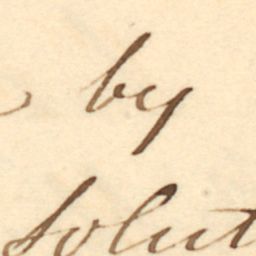 by
solut